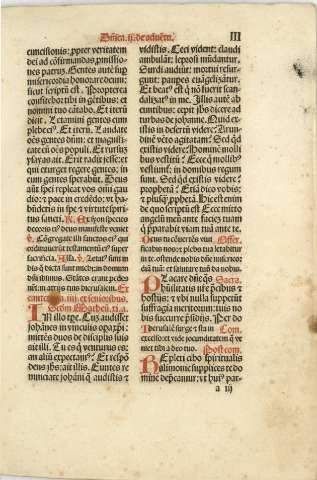 Dñica.ij.de aduẽtu. III
cumcisionis: ꝓpter veritatem
dei ad cõfirmandas ꝓmissio-
nes patrum. Gentes autẽ sup
misericordia honorare deum:
sicut scriptũ est. Propterea
confitebor tibi in gẽtibus: et
nomini tuo cãtabo. Et iterũ
dicit. Letamini gentes cum
plebe eiꝰ. Et iterũ. Laudate
oẽs gentes dñm: et magnifi-
cate eũ oẽs populi. Et rursus
ysayas ait. Erit radix iesse: et
qui exurget regere gentes: in
eum gentes sperabũt. Deus
aũt spei repleat vos oĩm gau
dio: ⁊ pace in credẽdo: vt ha-
bũdetis in spe ⁊ virtute spiri-
tus sancti. Ex syon species
decoris eiꝰ: deus manifeste veniet
Cõgregate illi sanctos eiꝰ qui
ordinauerũt testamentũ eius super
sacrificia. Alľa. Letatꝰ sum in
his q̃ dicta sunt michi: in domum
dñi ibimus. Stãtes erant pedes
nři in atrijs tuis hierusalem.
Scďm Matheũ. xi. a.
IN illo tpe. Cum audisset
johãnes in vinculis opa xp̃i:
mittẽs duos de discipulis suis
ait illi. Tu es q̃ venturus es:
an aliũ expectamꝰ? Et respõ
dens jhs: ait illis. Euntes re
nunciate johãni q̃ audistis ⁊
vidistis. Ceci vident: claudi
ambulãt: leprosi mũdantur.
Surdi audiũt: mortui resur-
gunt: pauperes euãgelizãtur.
Et beatꝰ est q̃ nõ fuerit scan-
dalizatꝰ in me. Illis autẽ ab
euntibus: cepit jhs dicere ad
turbas de johanne. Quid exi-
stis in desertũ videre? Arun-
dinẽ vẽto agitatam? Sed q̃d
existis videre? Hominẽ molli
bus vestitũ? Ecce q̃ mollibꝰ
vestiunť: in domibus regum
sunt. Sed q̃d existis videre?
prophetã? Etiã dico vobis:
⁊ plusq̃ ꝓphetã. Hic est enim
de quo scriptũ est: Ecce mitto
angelũ meũ ante faciẽ tuam
q̃ p̃parabit viam tuã ante te.
Deus tu conuertẽs viui- Offer.
ficabis nos: ⁊ plebs tua letabitur
in te. ostende nobis dñe misericor-
diã tuã: et salutare tuũ da nobis.
PLacare dñe q̃s Sacra.
humilitatis nr̃e p̃cibus ⁊
hostijs: ⁊ vbi nulla suppetũt
suffragia meritorum: tuis no-
bis succurre p̃sidijs. Per do
Iherusalẽ surge ⁊ sta in Com.
excelso: et vide jocunditatem q̃ ve
niet tibi a deo tuo. Post com.
REpleti cibo spiritualis
alimonie supplices te do
mine dep̃camur: vt huiꝰ par-
a iij